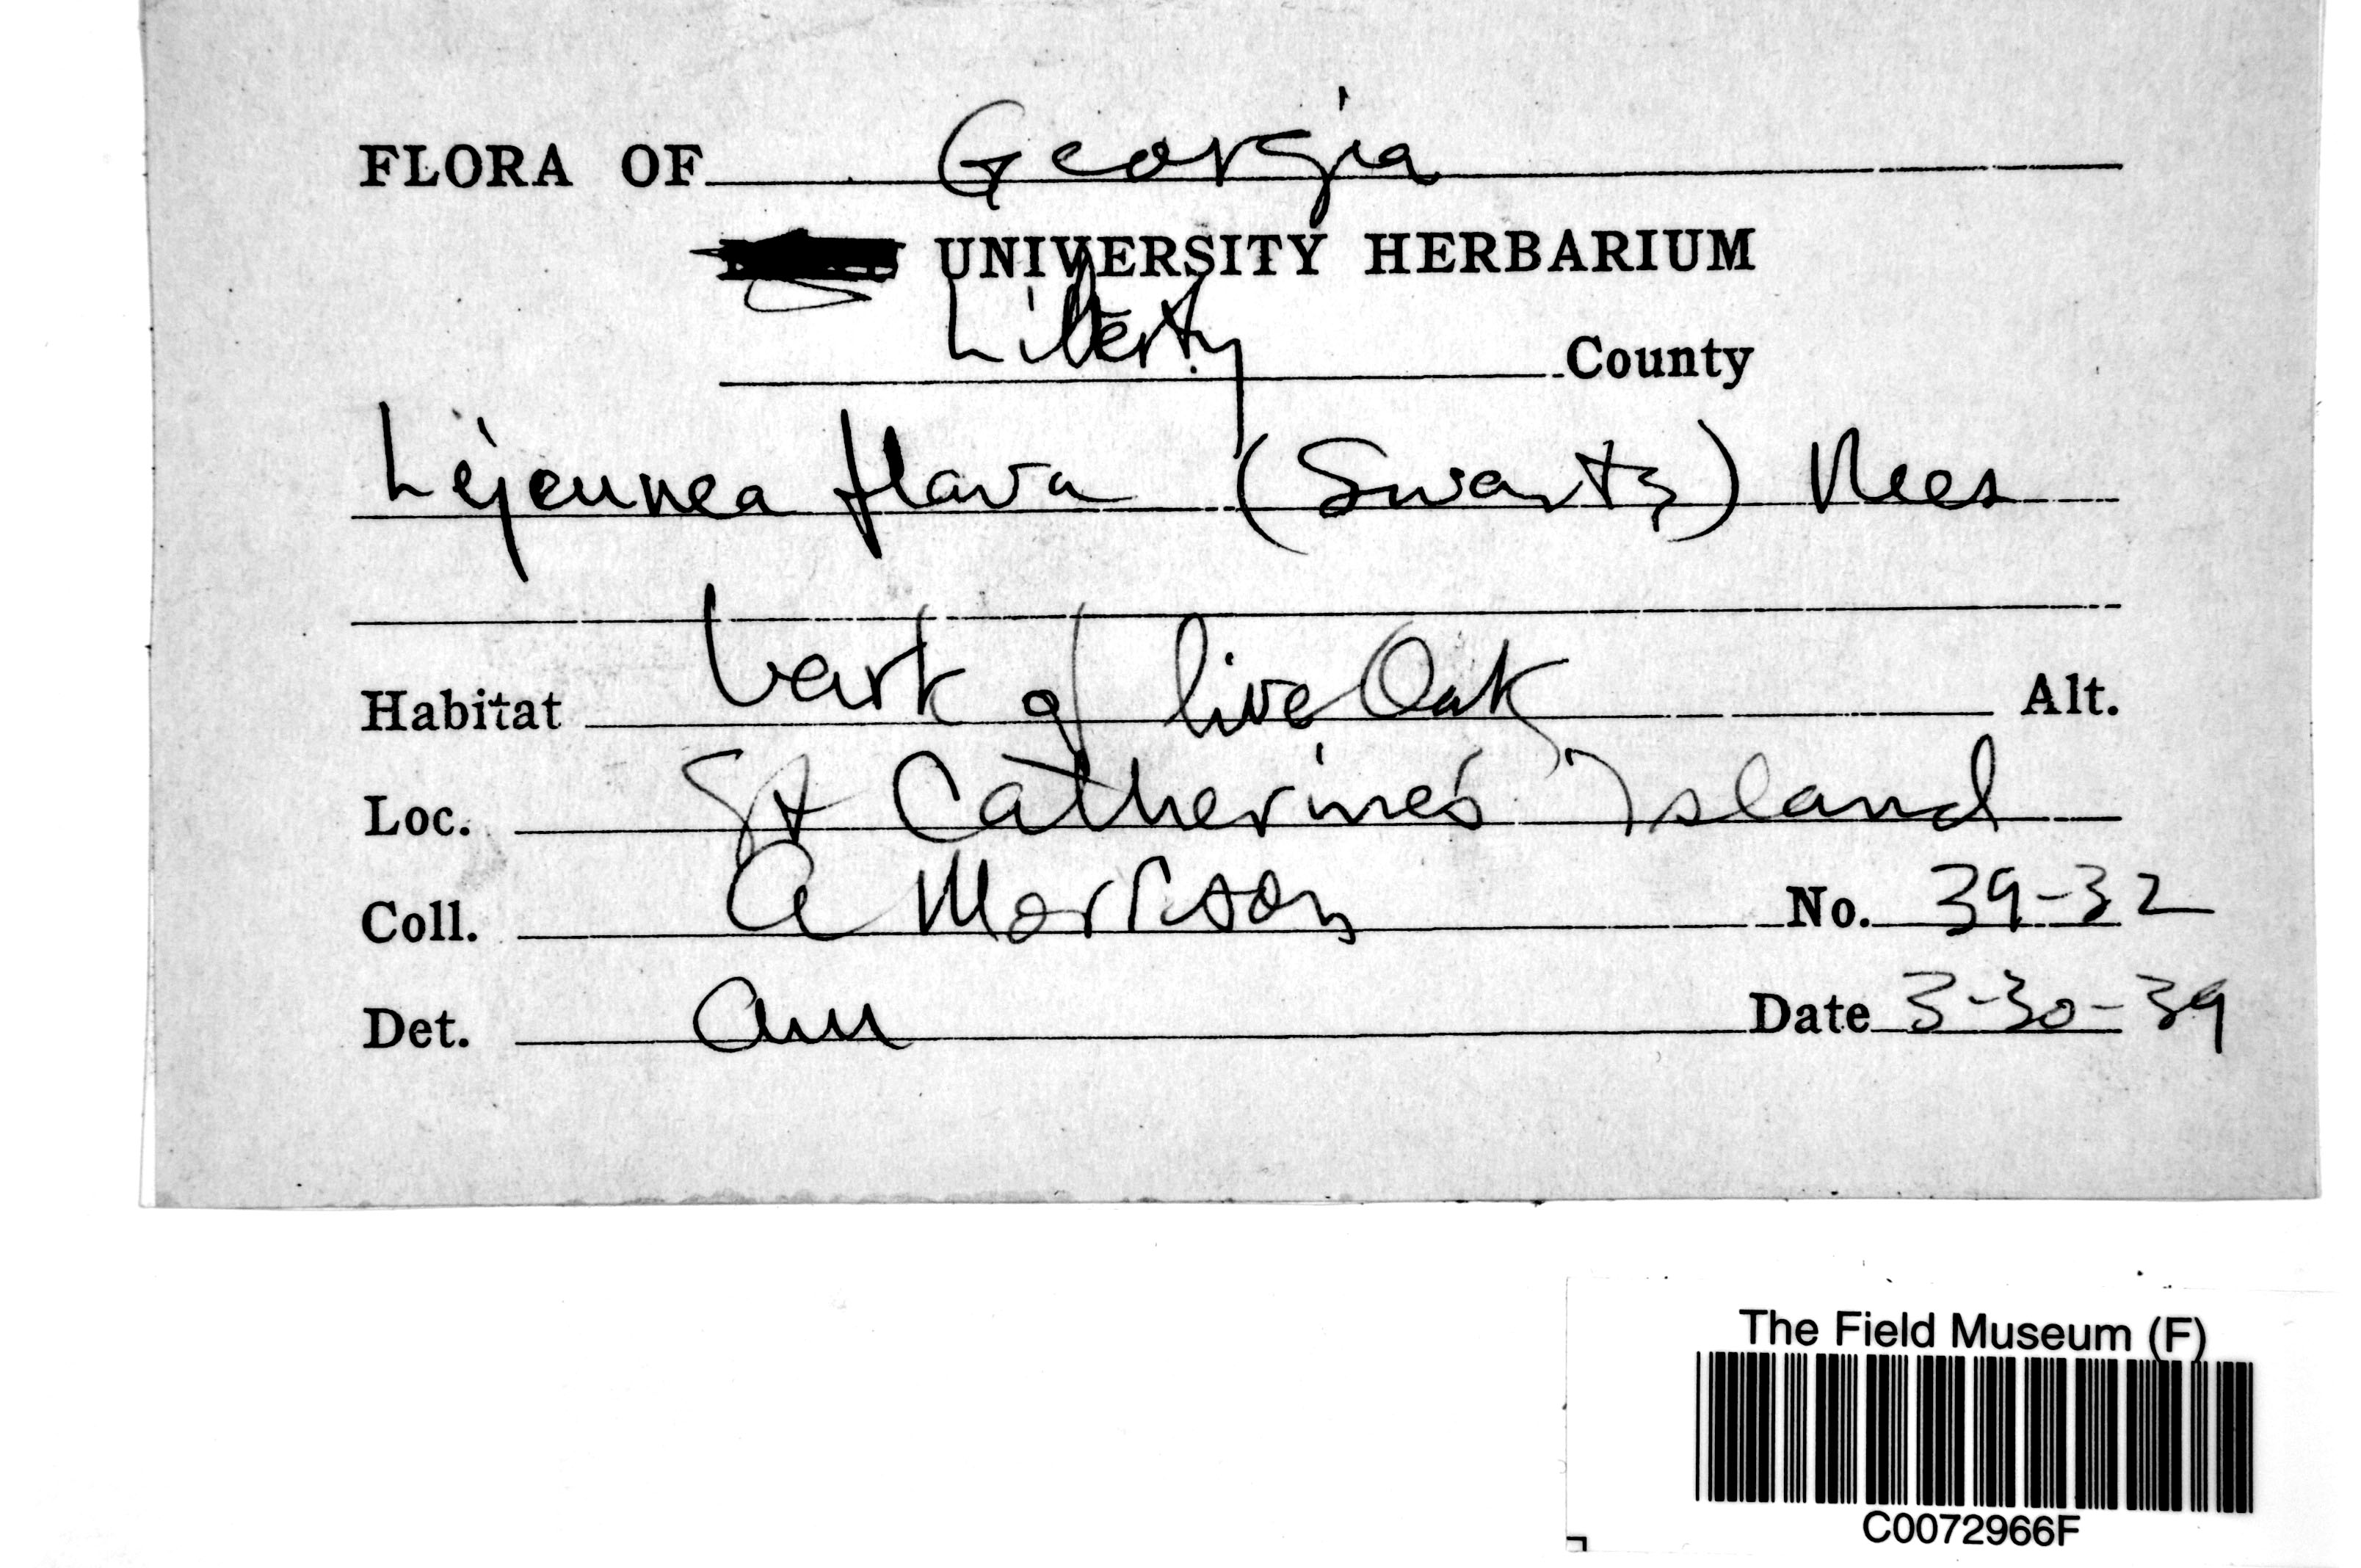 FLORA OF Georgia
UNIVERSITY HERBARIUM
Liberty County
Lejeunea flava (Swartz) Nees
Habitat bark of live Oak Alt.
Loc. St Catherine's Island
Coll. A Morrison No. 39-32
Det. am Date 3-30-39
The Field Museum (F)
C0072966F